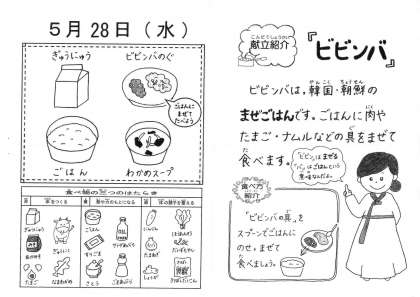 5月28日(水)
ぎゅうにゅう
ビビンバのぐ
ごはんに
まぜて
たべよう
ごはん
わかめスープ
食べ物の三つのはたらき
赤
黄
緑
ぎゅうにゅう
ごはん
にんじん
たまご
さとう
しょうが
こんだてしょうかい
献立紹介
『ビビンバ』
かんこく ちょうせん
ビビンバは,韓国・朝鮮の
まぜごはんです。ごはんに肉や
たまご・ナムルなどの具をまぜて
食べます。
「ビビン」はまぜる
「バ」はごはんという
意味なんだよ。
食べ方
紹介
「ビビンバの具」を
スプーンでごはんに
のせ,まぜて
食べましょう。